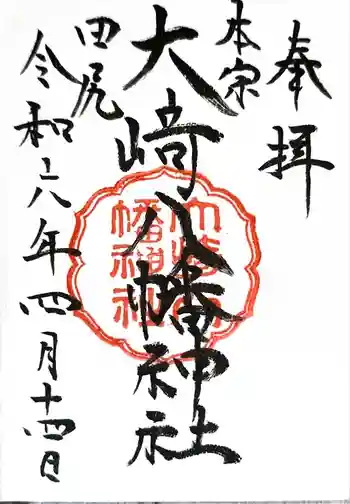 奉拝
本宗
大崎八幡神社
田尻
令和六年四月十四日
大崎八幡神社